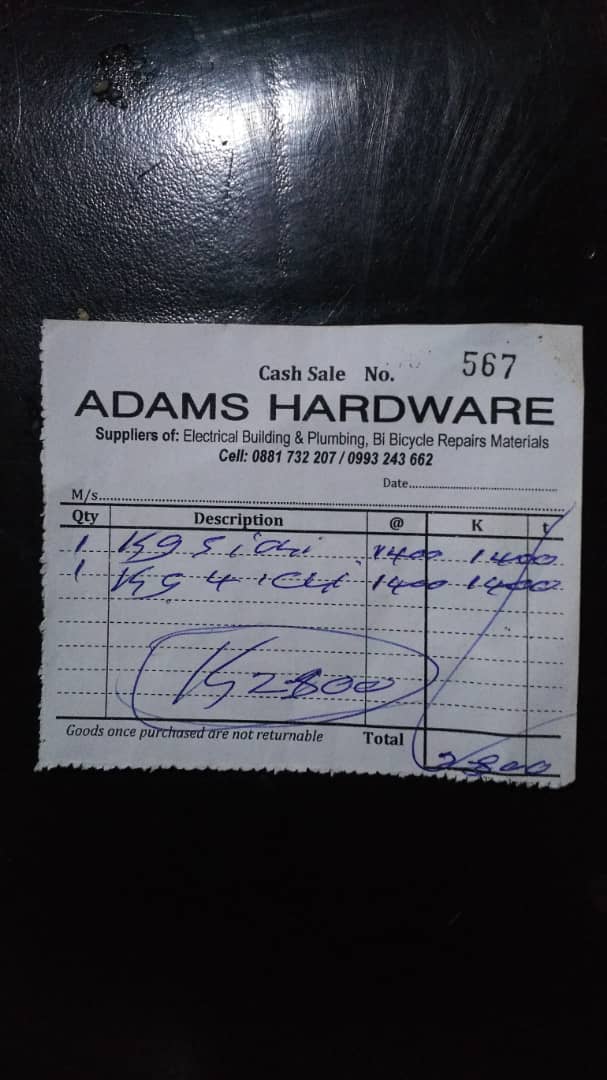 Cash Sale No. 567
ADAMS HARDWARE
Suppliers of: Electrical Building & Plumbing, Bi Bicycle Repairs Materials
Cell: 0881 732 207 / 0993 243 662
Date
M/s
Qty Description @ K t
1 Kg 5 ichi 1400 1400
1 Kg 4 ichi 1400 1400
K2800
Goods once purchased are not returnable Total 2800